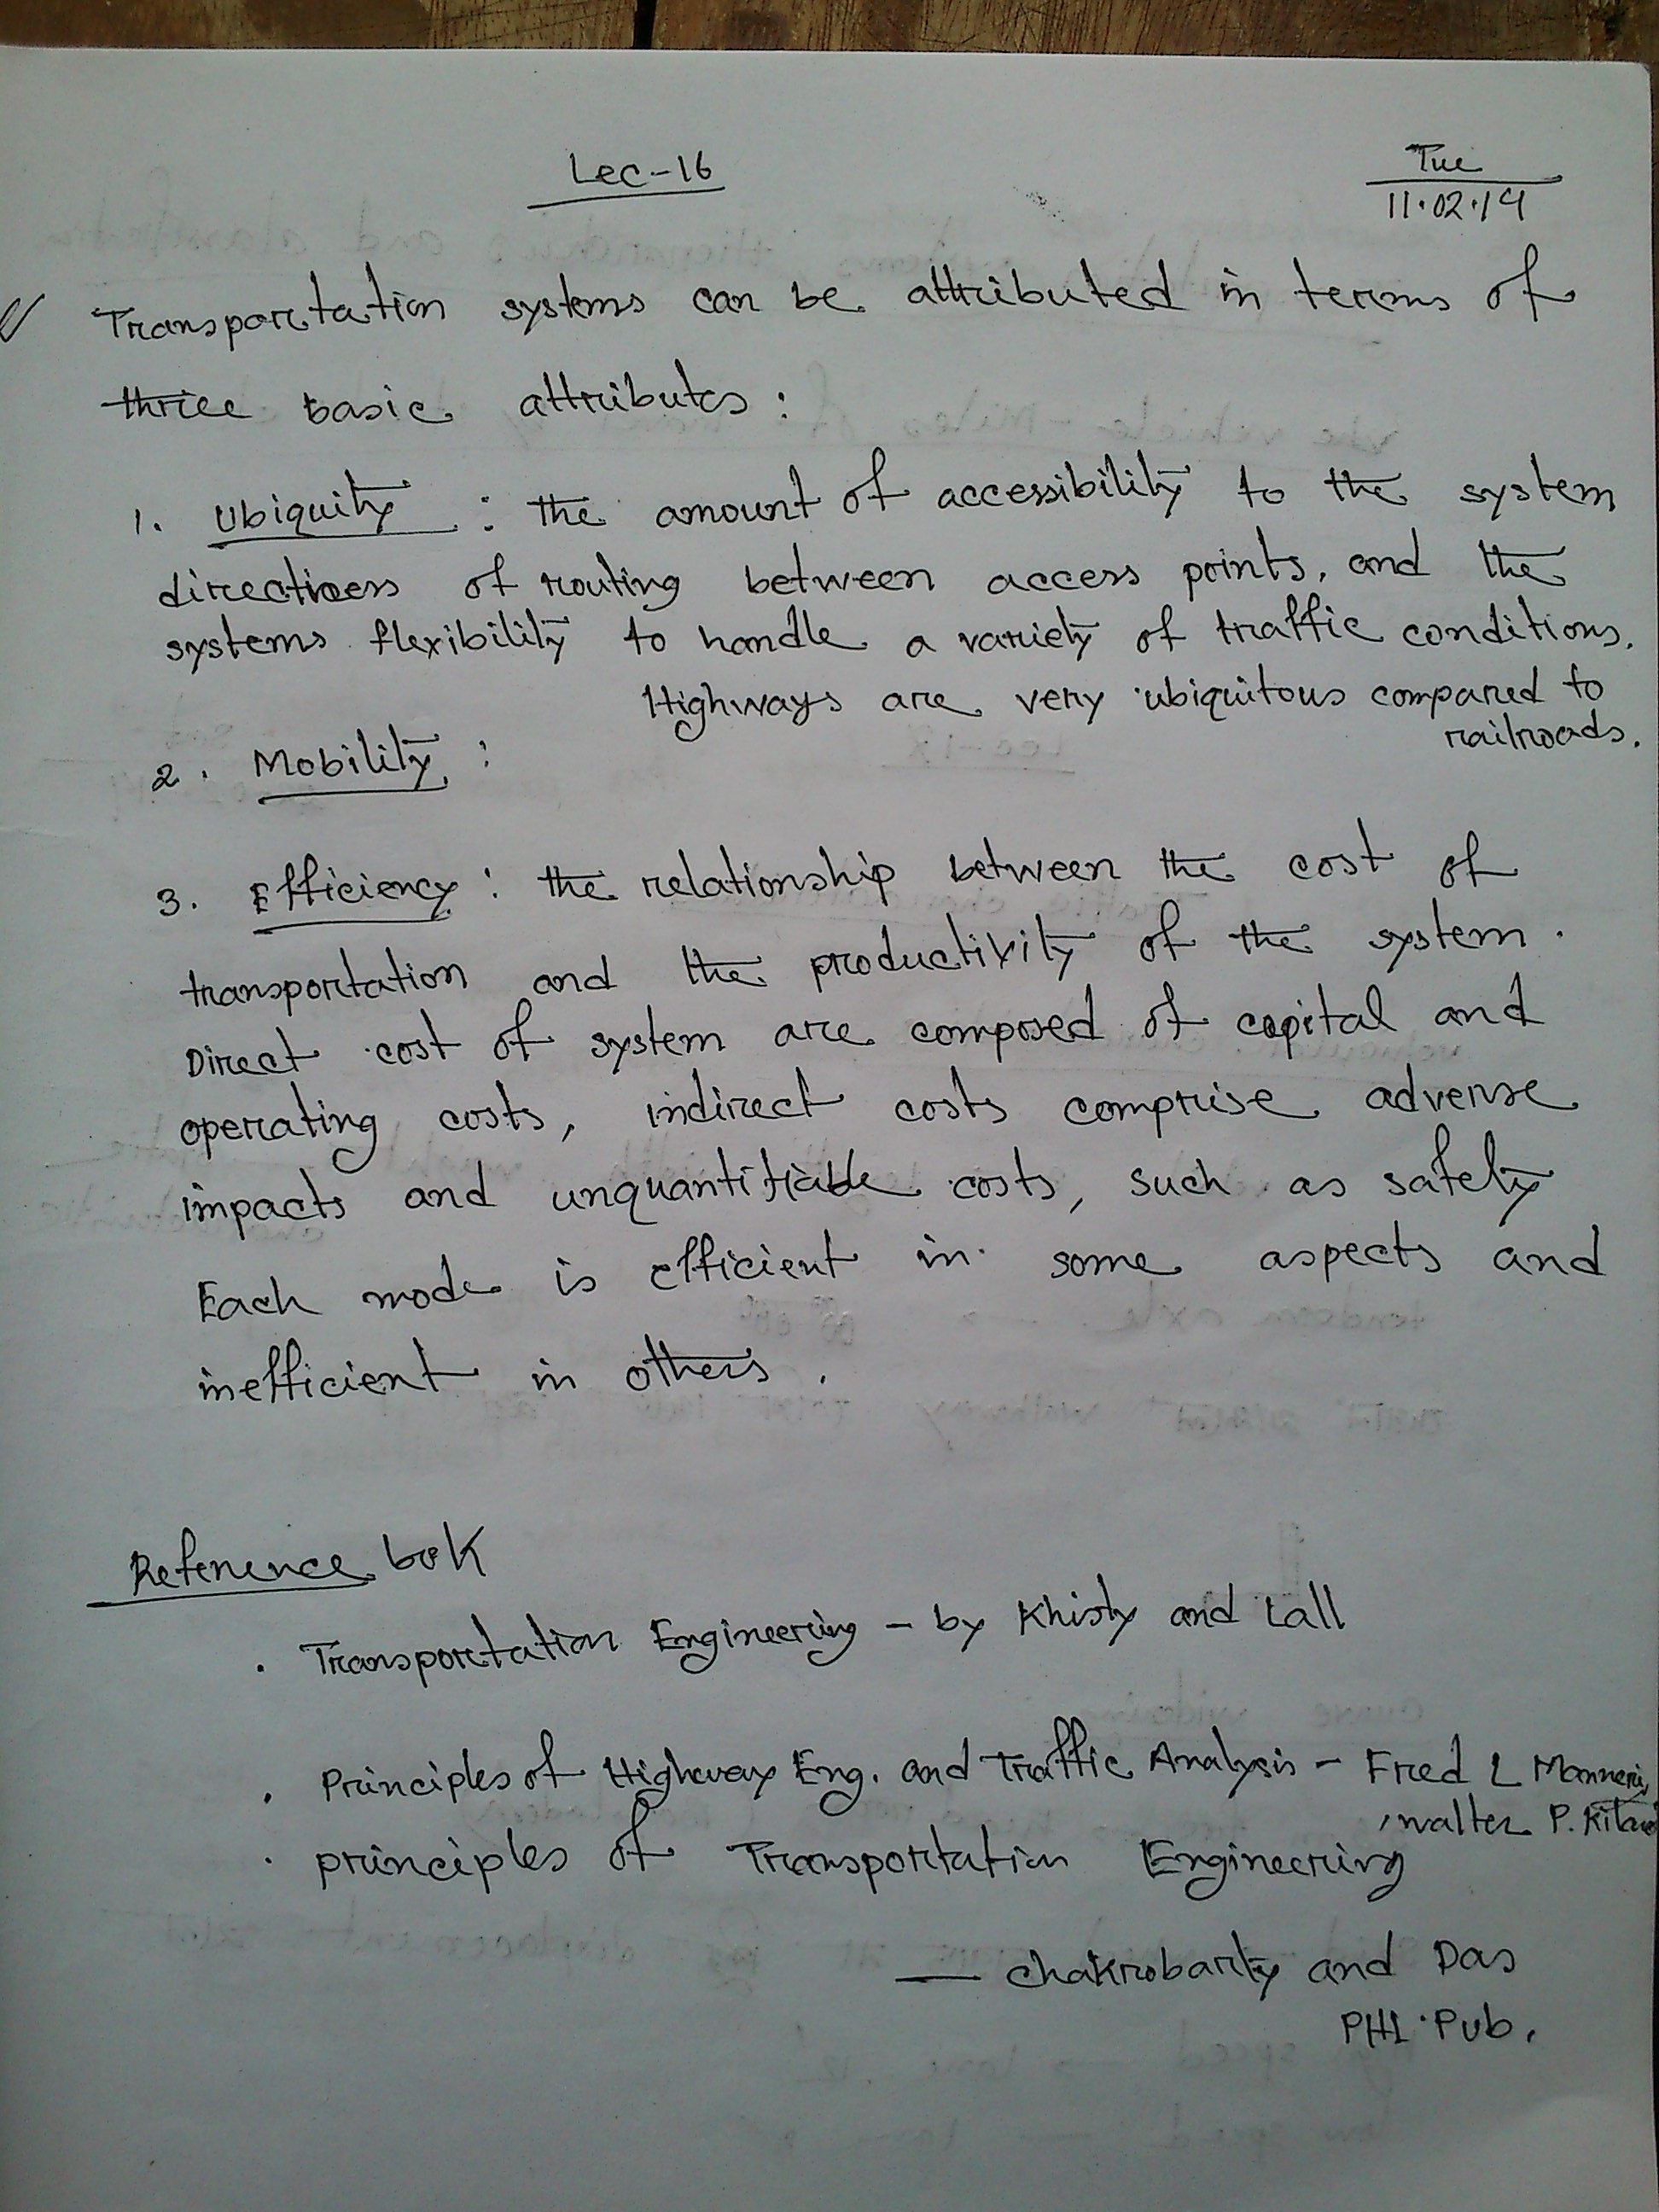 Lec-16
Tue
11.02.14
Transportation systems can be attributed in terms of
three basic attributes :
1. Ubiquity : the amount of accessibility to the system
directness of routing between access points, and the
systems flexibility to handle a variety of traffic conditions.
Highways are very ubiquitous compared to
railroads.
2. Mobility :
3. Efficiency : the relationship between the cost of
transportation and the productivity of the system.
Direct cost of system are composed of capital and
operating costs, indirect costs comprise adverse
impacts and unquantifiable costs, such as safety
Each mode is efficient in some aspects and
inefficient in others.
Reference book
. Transportation Engineering - by Khisty and Lall
. Principles of Highway Eng. and Traffic Analysis - Fred L
, walter P.
. principles of Transportation Engineering
— Chakrobarty and Das
PHI Pub.